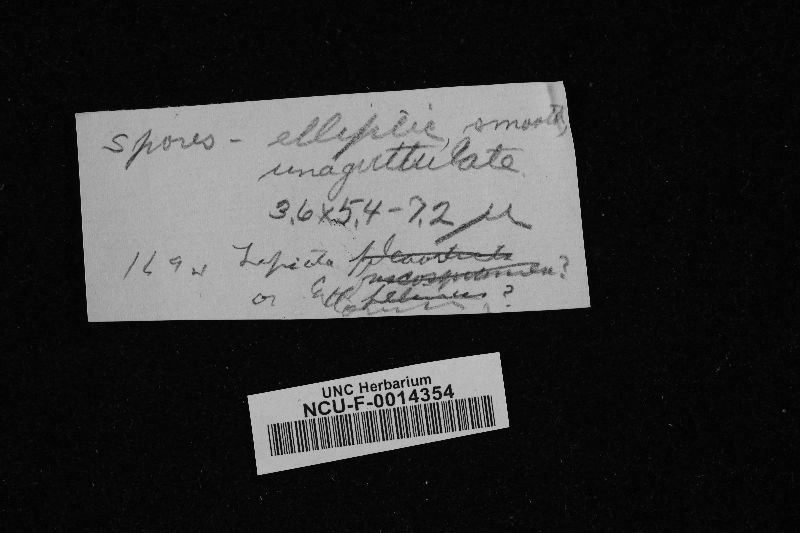 Spores - elliptic, smooth,
unaguttulate
3.6x5.4-7.2 µ
Lepiota
?
or ?
UNC Herbarium
NCU-F-0014354